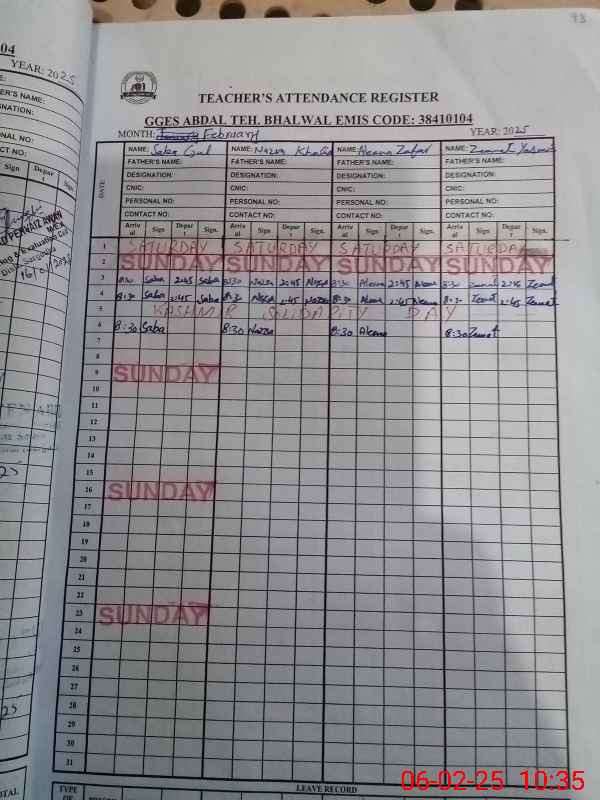 93
04
YEAR: 2025
TEACHER'S ATTENDANCE REGISTER
GGES ABDAL TEH. BHALWAL EMIS CODE: 38410104
MONTH: January February YEAR: 2025
NAME: Saba Gul NAME: Nazra Khalid NAME: Aleena Zafar NAME:
FATHER'S NAME: FATHER'S NAME: FATHER'S NAME: FATHER'S NAME:
DESIGNATION: DESIGNATION: DESIGNATION: DESIGNATION:
CNIC: CNIC: CNIC: CNIC:
PERSONAL NO: PERSONAL NO: PERSONAL NO: PERSONAL NO:
CONTACT NO: CONTACT NO: CONTACT NO: CONTACT NO:
DATE
Arrival Sign Depart Sign. Arrival Sign. Depart Sign. Arrival Sign. Depart Sign. Arrival Sign. Depart Sign.
1 SATURDAY SATURDAY SATURDAY SATURDAY
2 SUNDAY SUNDAY SUNDAY SUNDAY
3 8:30 Saba 2:45 Saba 8:30 Nazra 2:45 Nazra 8:30 Aleena 2:45 Aleena 8:30 Zenat 2:45 Zenat
4 8:30 Saba 2:45 Saba 8:30 Nazra 2:45 Nazra 8:30 Aleena 2:45 Aleena 8:30 Zenat 2:45 Zenat
5 KASHMIR SOLIDARITY DAY
6 8:30 Saba 8:30 Nazra 8:30 Aleena 8:30 Zenat
7
8
9 SUNDAY
10
11
12
13
14
15
16 SUNDAY
17
18
19
20
21
22
23 SUNDAY
24
25
26
27
28
29
30
31
LEAVE RECORD
TYPE OF
06-02-25 10:35